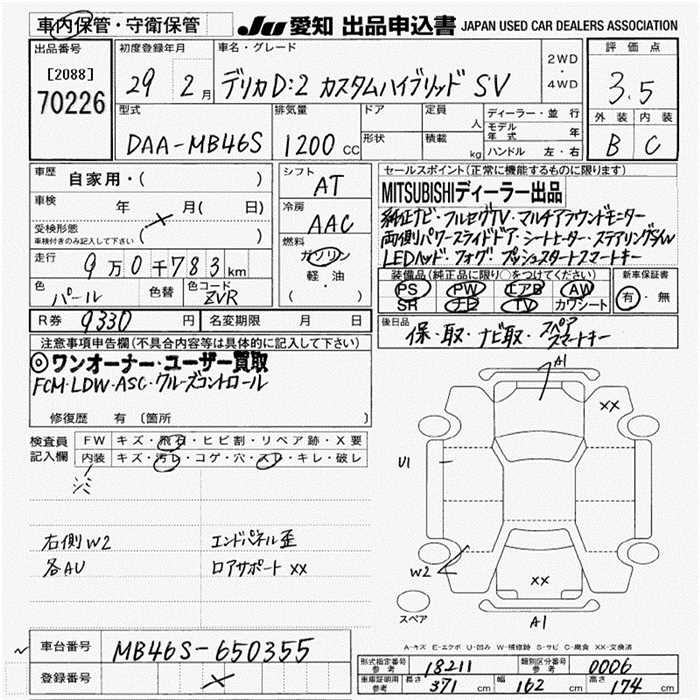 車内保管・守衛保管
JU 愛知 出品申込書 JAPAN USED CAR DEALERS ASSOCIATION
出品番号
[2088]
70226
初度登録年月
29年 2月
車名・グレード
デリカD:2 カスタムハイブリッド SV
2WD
・
4WD
評価点
3.5
外装 内装
B C
型式
DAA-MB46S
排気量
1200 CC
ドア
形状
定員 人
積載 kg
ディーラー・並行
モデル年式 年
ハンドル 左・右
車歴
自家用・( )
車検 年 月( 日)
受検形態
車検付きのみ記入して下さい ( )
走行
9万0千783km
色
パール
色替
色コード
ZVR
シフト
AT
冷房
AAC
燃料
ガソリン
軽・油
( )
R券 9330 円
名変期限 月 日
セールスポイント(正常に機能するものに限ります)
MITSUBISHIディーラー出品
純正ナビ・フルセグTV・マルチアラウンドモニター
両側パワースライドドア・シートヒーター・ステアリングSW
LEDヘッド・フォグ・プッシュスタートスマートキー
装備品(純正品に限り○をつけてください)
PS PW エアB AW
SR ナビ TV カワシート
新車保証書
有・無
後日品
保・取・ナビ取・スペアスマートキー
注意事項申告欄(不具合内容等は具体的に記入して下さい)
◎ワンオーナー・ユーザー買取
FCM・LDW・ASC・クルーズコントロール
修復歴 有 〔箇所 〕
検査員記入欄
FW キズ・飛石・ヒビ割・リペア跡・X要
内装 キズ・汚レ・コゲ・穴・スレ・キレ・破レ
右側W2
各AU
エンドパネル歪
ロアサポートXX
A1
XX
U1
W2
XX
スペア
A1
A-キズ E-エクボ U-凹み W-補修跡 S-サビ C-腐食 XX-交換済
車台番号 MB46S-650355
登録番号
型式指定番号
参考
18211
類別区分番号
参考
0006
車庫証明用
参考
長さ 371 cm 幅 162 cm 高さ 174 cm